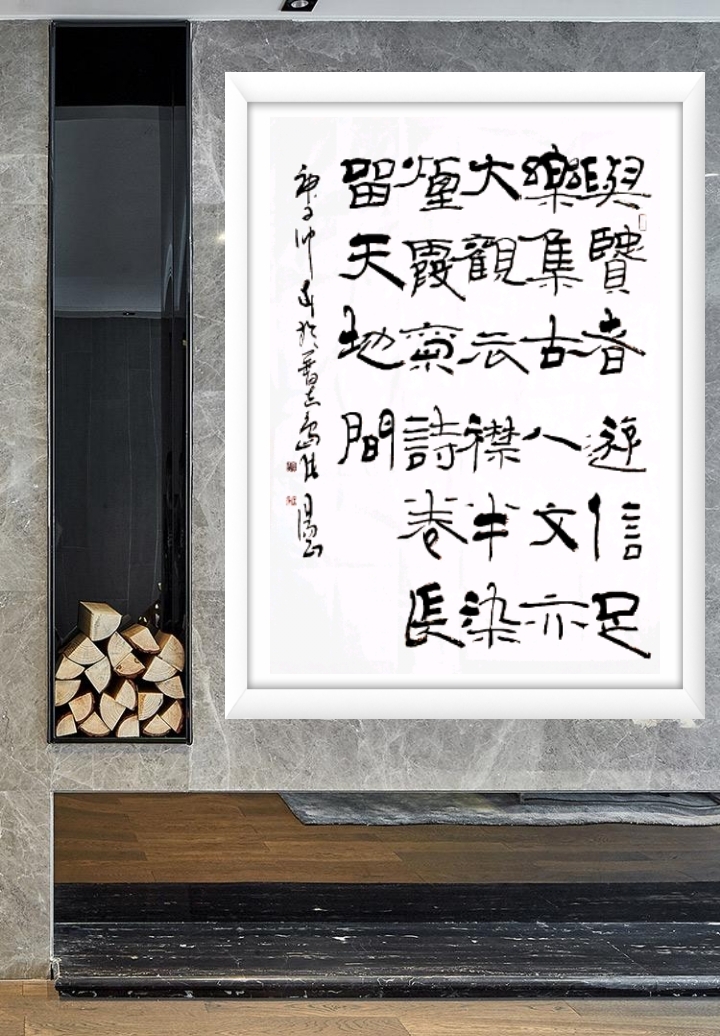 與賢者遊信足
樂集古人文亦
大觀云襟半染
煙霞氣詩卷長
留天地間